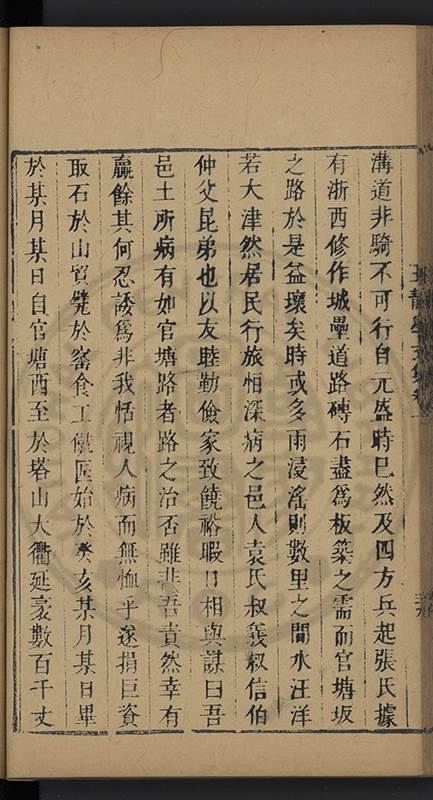 溝道非騎不可行自元盛時已然及四方兵起張氏據
有浙西修作城壘道路磚石盡爲板築之需而官塘坂
之路於是益壞矣時或多雨浸滛則數里之間水汪洋
若大津然居民行旅怕深病之邑人袁氏叔義叔信伯
仲父昆弟也以友睦勤儉家致饒裕暇日相與謀曰吾
邑土所病有如官塘路者路之治否雖非吾責然幸有
贏餘其何忍諉爲非我恬視人病而無恤乎遂捐巨資
取石於山賀甓於窰食工僦匠始於癸亥某月某日畢
於某月某日自官塘西至於塔山大衢延袤數百千丈